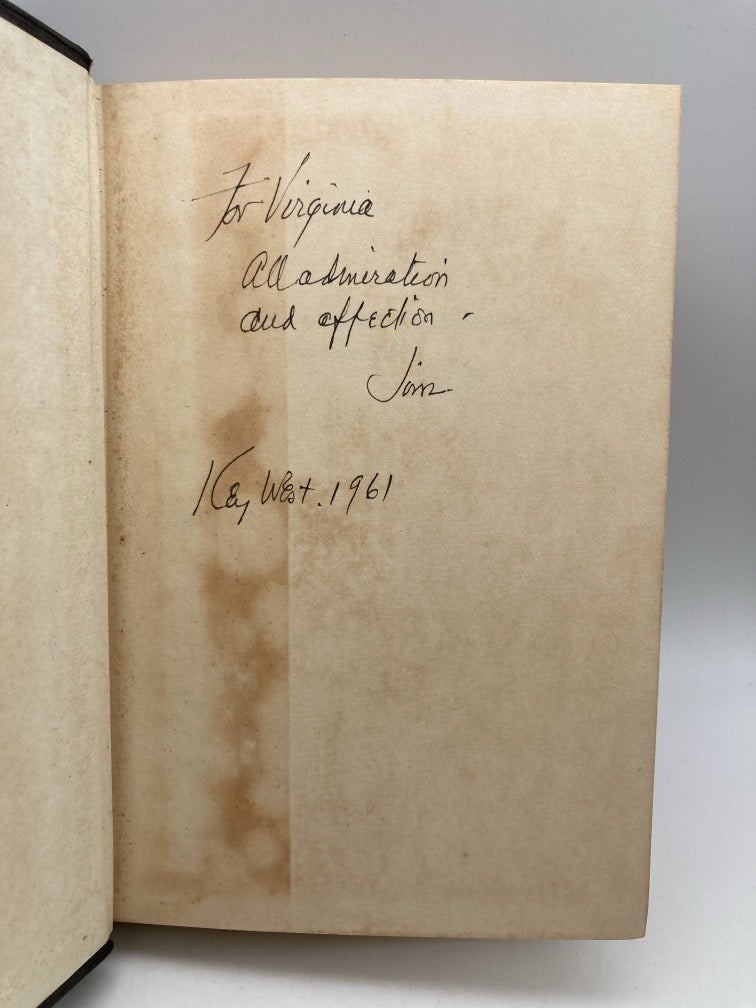 For Virginia
All admiration
and affection -
Jim
Key West. 1961